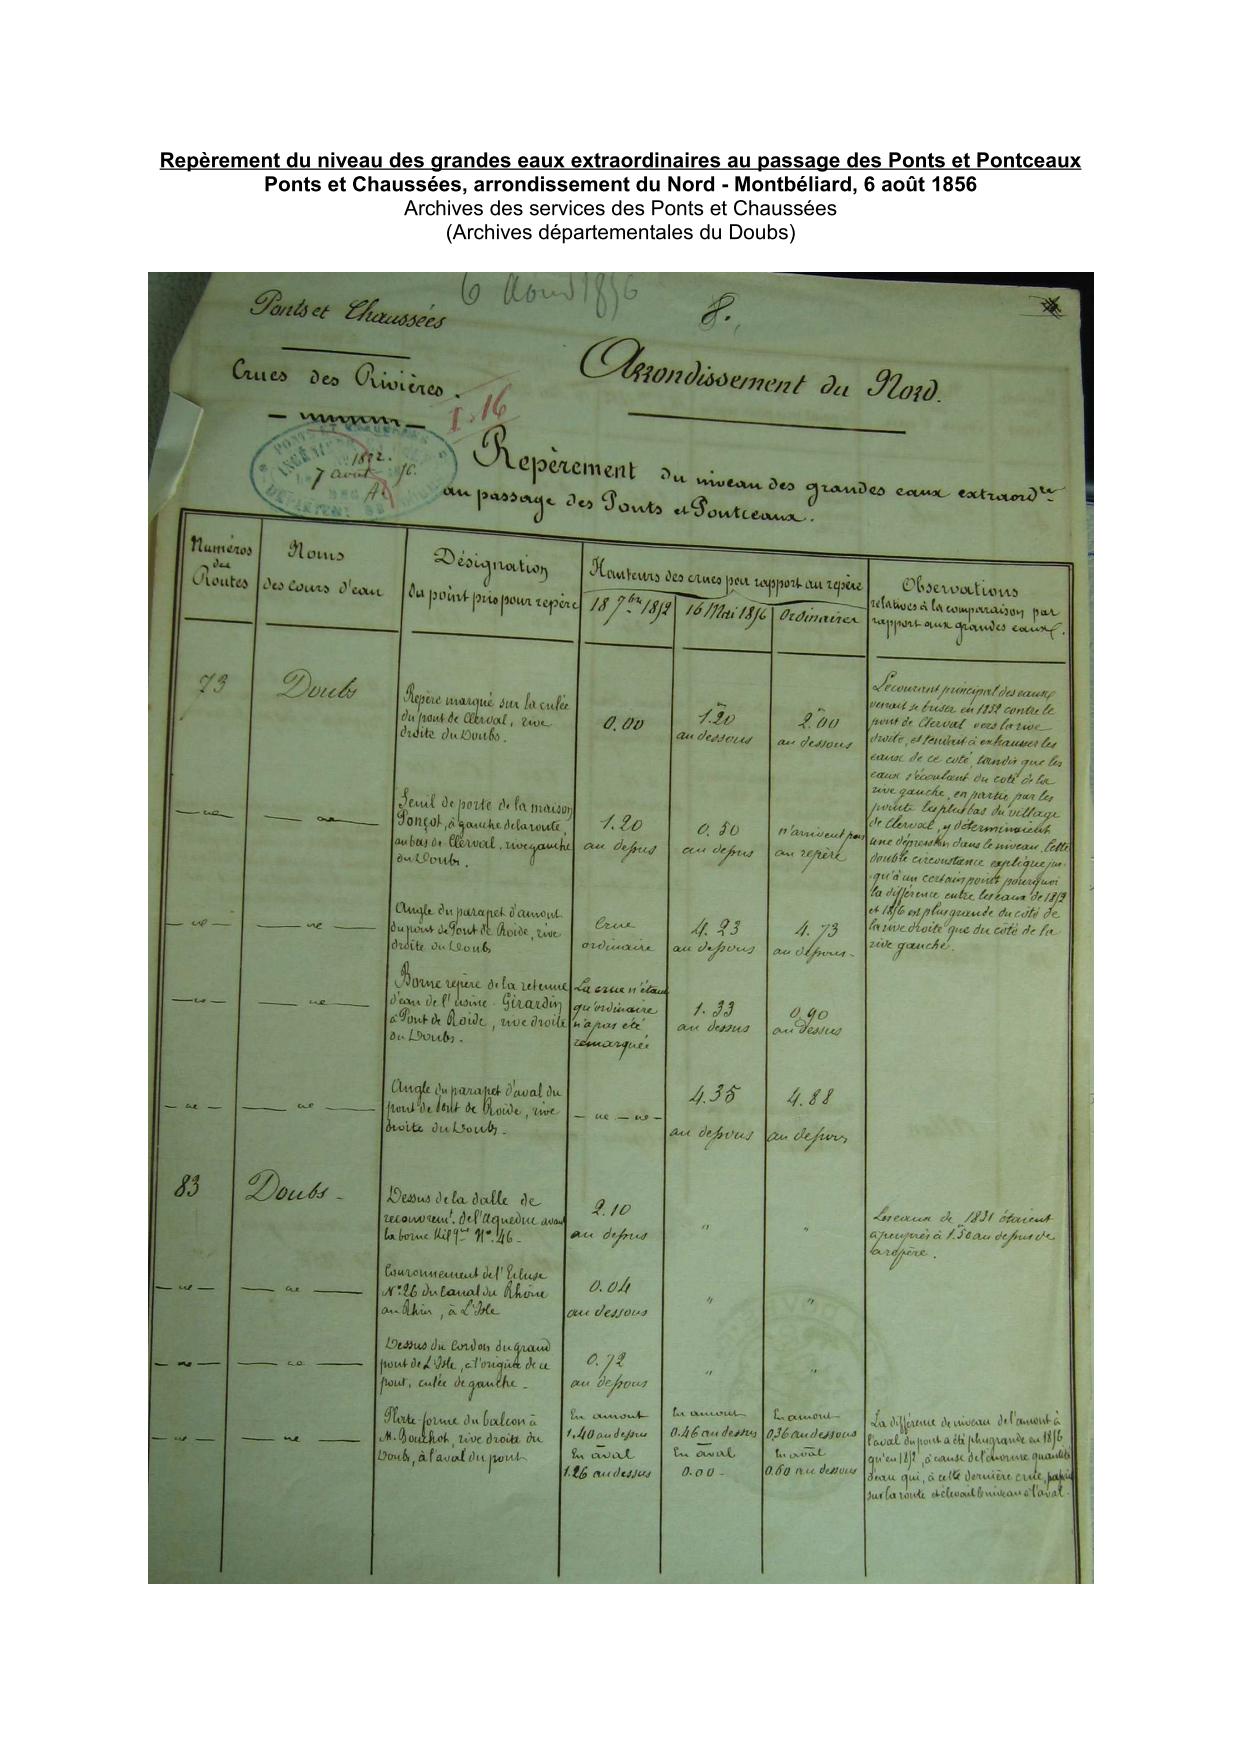 Repèrement du niveau des grandes eaux extraordinaires au passage des Ponts et Pontceaux
Ponts et Chaussées, arrondissement du Nord - Montbéliard, 6 août 1856
Archives des services des Ponts et Chaussées
(Archives départementales du Doubs)
6 Aout 1856
8.
Ponts et Chaussées
Crues des Rivières.
I.16
Arrondissement du Nord.
PONTS ET CHAUSSÉES
7 août
Repèrement du niveau des grandes eaux extraord.res
au passage des Ponts et Pontceaux.
Numéros
des
Routes
Noms
des cours d'eau
Désignation
du point pris pour repère
Hauteurs des crues par rapport au repère
18 7bre 1852
16 Mai 1856
Ordinaires
Observations
relatives à la comparaison par
rapport aux grandes eaux.
73
Doubs
Repère marqué sur la culée
du pont de Clerval, rive
droite du Doubs.
0.00
1.m20
au dessous
2.m00
au dessous
Le courant principal des eaux
venait se briser en 1852 contre le
pont de Clerval vers la rive
droite, et tendait à exhausser les
eaux de ce coté, tandis que les
eaux s'écoulant du coté de la
rive gauche, en partie par les
points les plus bas du village
de Clerval, y déterminaient
une dépression dans le niveau. Cette
double circonstance explique jus-
qu'à un certain point pourquoi
la différence entre les eaux de 1852
et 1856 est plus grande du coté de
la rive droite que du coté de la
rive gauche.
Seuil de porte de la maison
Ponçot, à gauche de la route,
au bas de Clerval, rive gauche
du Doubs.
1.20
au dessus
0.50
au dessus
n'arrivent pas
au repère
Angle du parapet d'amont
du pont de Pont de Roide, rive
droite du Doubs
Crue
ordinaire
4.23
au dessous
4.73
au dessous
Borne repère de la retenue
d'eau de l'usine Girardin
à Pont de Roide, rive droite
du Doubs.
La crue n'étant
qu'ordinaire
n'a pas été
remarquée
1.33
au dessus
0.90
au dessus
Angle du parapet d'aval du
pont de Pont de Roide, rive
droite du Doubs.
4.35
au dessous
4.88
au dessous
83
Doubs
Dessus de la dalle de
recouvremt. de l'aqueduc avant
la borne Kilque No. 46
2.10
au dessus
"
"
Les eaux de 1831 étaient
à peu près à 1.m50 au dessus de
la repère.
Couronnement de l'Ecluse
No. 26 du Canal du Rhône
au Rhin, à L'Isle
0.04
au dessous
"
"
Dessus du Cordon du grand
pont de L'Isle, à l'origine de ce
pont, culée de gauche
0.72
au dessous
"
"
Plate-forme du balcon à
M. Bouchot, rive droite du
Doubs, à l'aval du pont
En amont
1.40 au dessus
En aval
1.26 au dessus
En amont
0.46 au dessus
En aval
0.00
En amont
0.36 au dessous
En aval
0.60 au dessous
La différence de niveau de l'amont à
l'aval du pont a été plus grande en 1856
qu'en 1852, à cause de l'énorme quantité
d'eau qui, à cette dernière crue, passait
sur la route et élevait le niveau à l'aval.